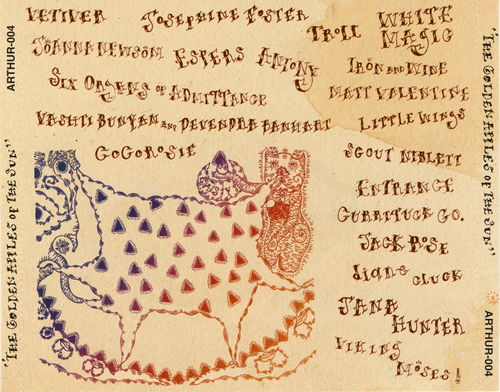 VETIVER JOSEPHINE FOSTER TROLL WHITE MAGIC
JOANNA NEWSOM ESPERS ANTONY IRON AND WINE
SIX ORGANS OF ADMITTANCE MATT VALENTINE
VASHTI BUNYAN AND DEVENDRA BANHART LITTLE WINGS
COCOROSIE SCOUT NIBLETT
ENTRANCE
CURRITUCK CO.
JACK ROSE
DIANE CLUCK
JANA HUNTER
VIKING MOSES!
"THE GOLDEN APPLES OF THE SUN"
ARTHUR-004
"THE GOLDEN APPLES OF THE SUN"
ARTHUR-004